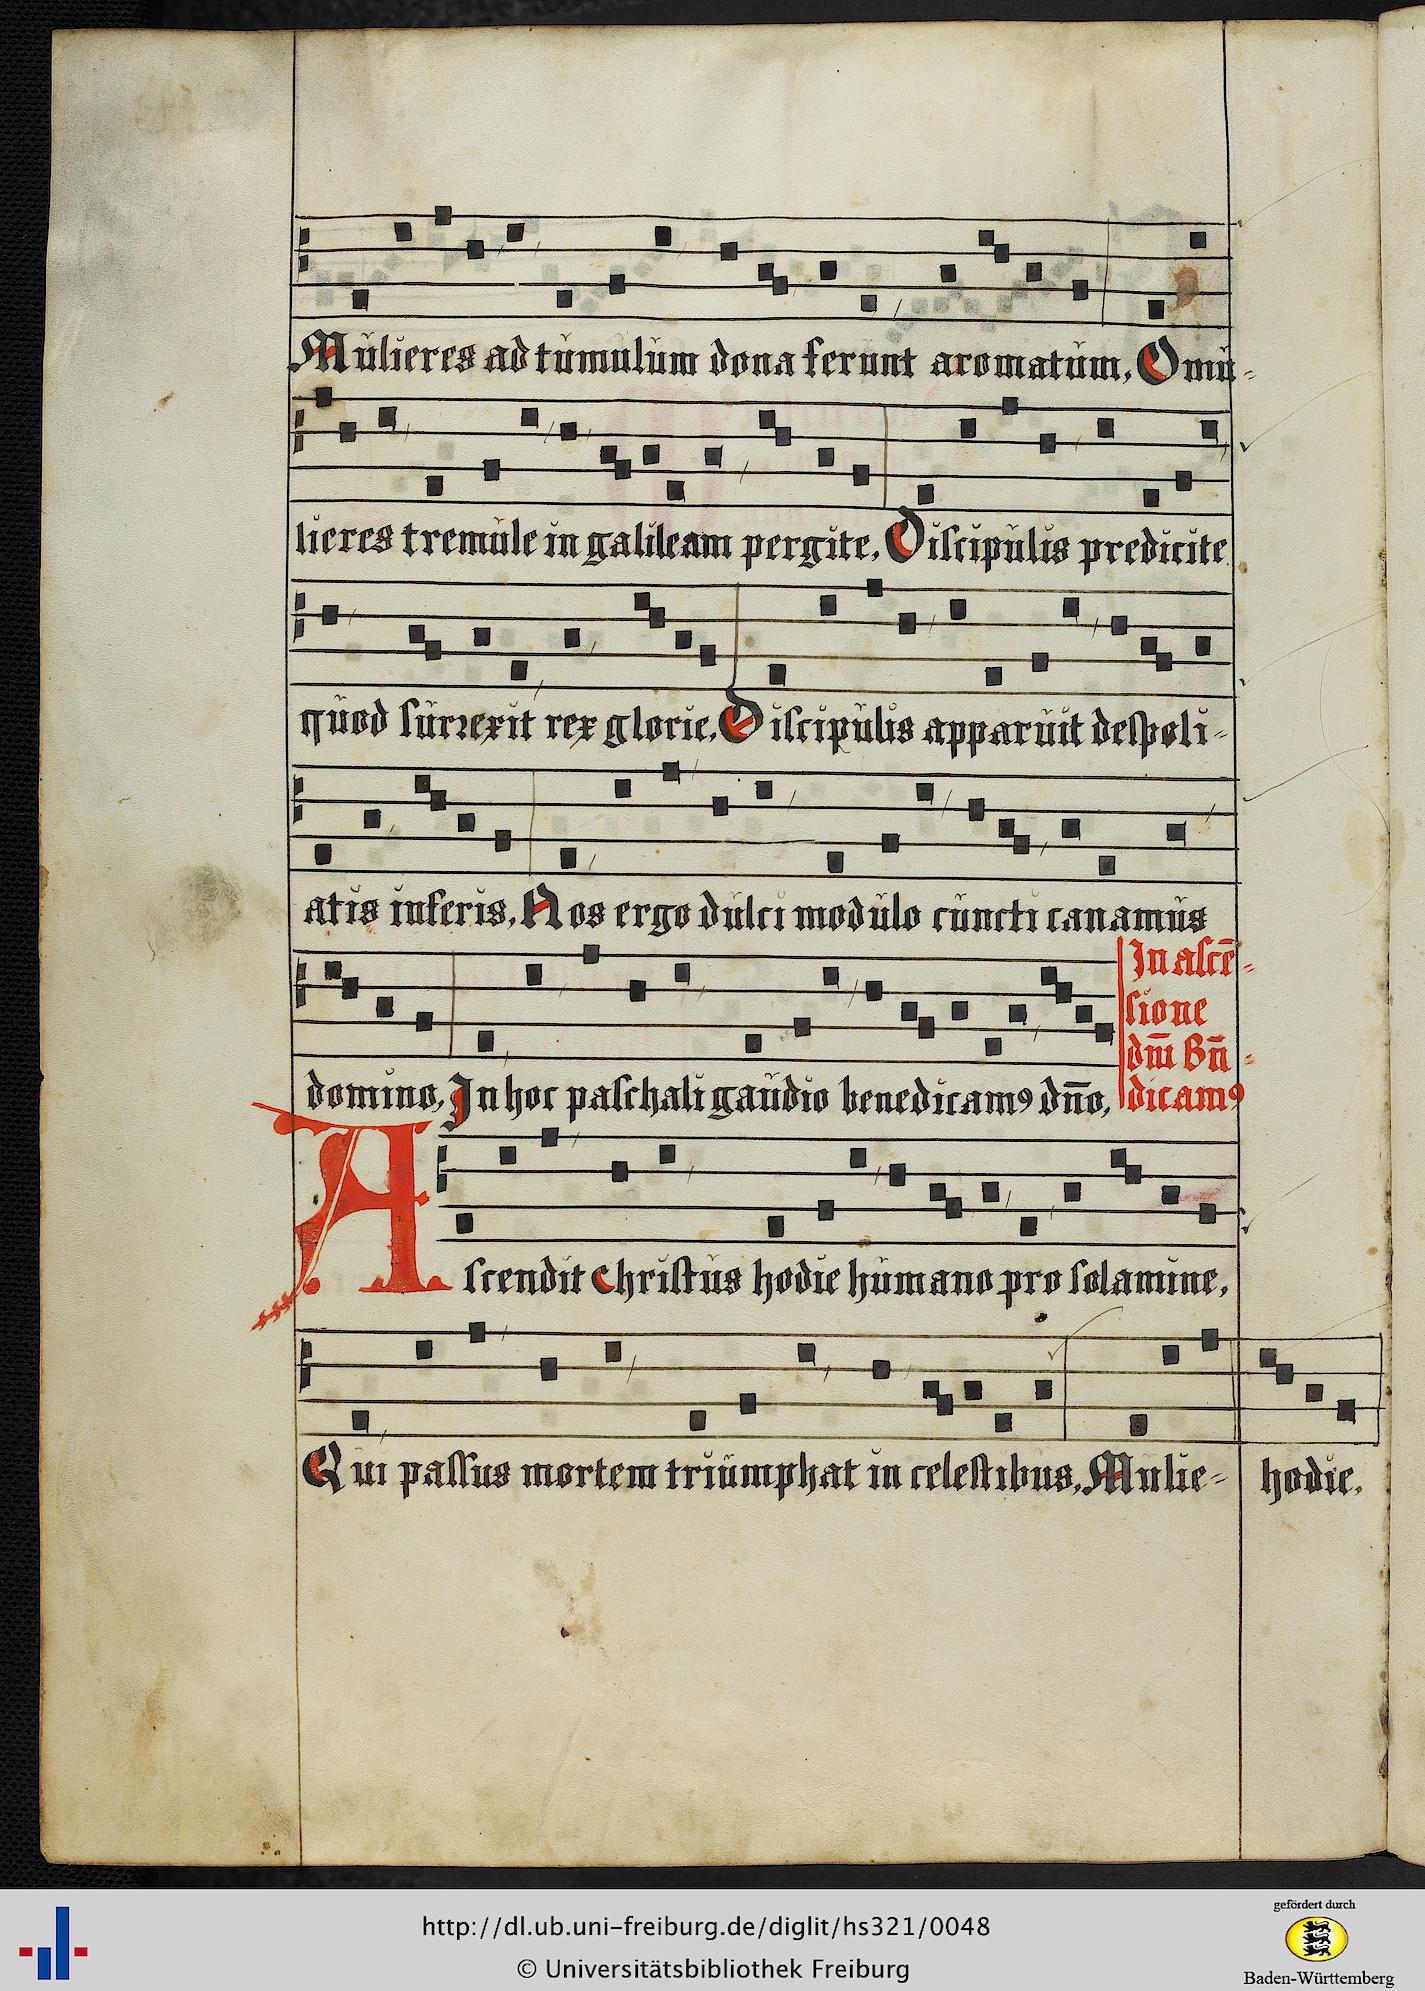 Mulieres ad tumulum dona ferunt aromatum, O mu-
lieres tremule in galileam pergite, Discipulis predicite
quod surrexit rex glorie, Discipulis apparuit despoli-
atis inferis, Nos ergo dulci modulo cuncti canamus
In ascē-
sione
dnī Bn̄-
dicamꝰ
domino, In hoc paschali gaudio benedicamꝰ dn̄o,
Ascendit christus hodie humano pro solamine,
Qui passus mortem triumphat in celestibus, Mulie- hodie.
http://dl.ub.uni-freiburg.de/diglit/hs321/0048
© Universitätsbibliothek Freiburg
gefördert durch
Baden-Württemberg